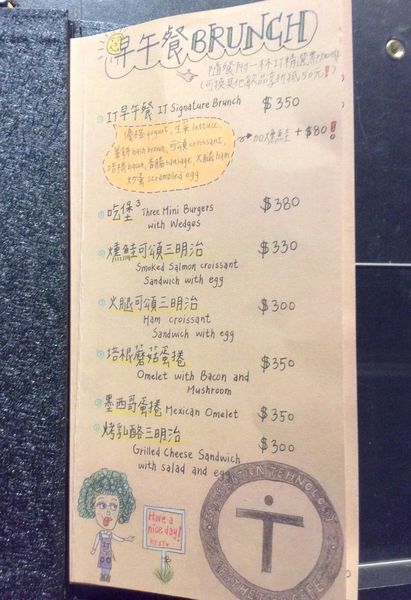 早午餐BRUNCH
隨餐附一杯IT精選
(可換其他飲品享折抵50元!)
IT早午餐 IT Signature Brunch $350
優格 yogurt, 生菜 lettuce,
薯餅 hash brown, 可頌 croissant,
培根 bacon, 香腸 sausage, 火腿 ham
炒蛋 scrambled egg
加燻鮭 + $80!
吃堡³ Three Mini Burgers $380
with Wedges
燻鮭可頌三明治 $330
Smoked Salmon croissant
Sandwich with egg
火腿可頌三明治 $300
Ham croissant
Sandwich with egg
培根蘑菇蛋捲 $350
Omelet with Bacon and
Mushroom
墨西哥蛋捲 Mexican Omelet $350
烤乳酪三明治 $300
Grilled Cheese Sandwich
with salad and egg
Have a
nice day!
IT
TECHNOLOGY